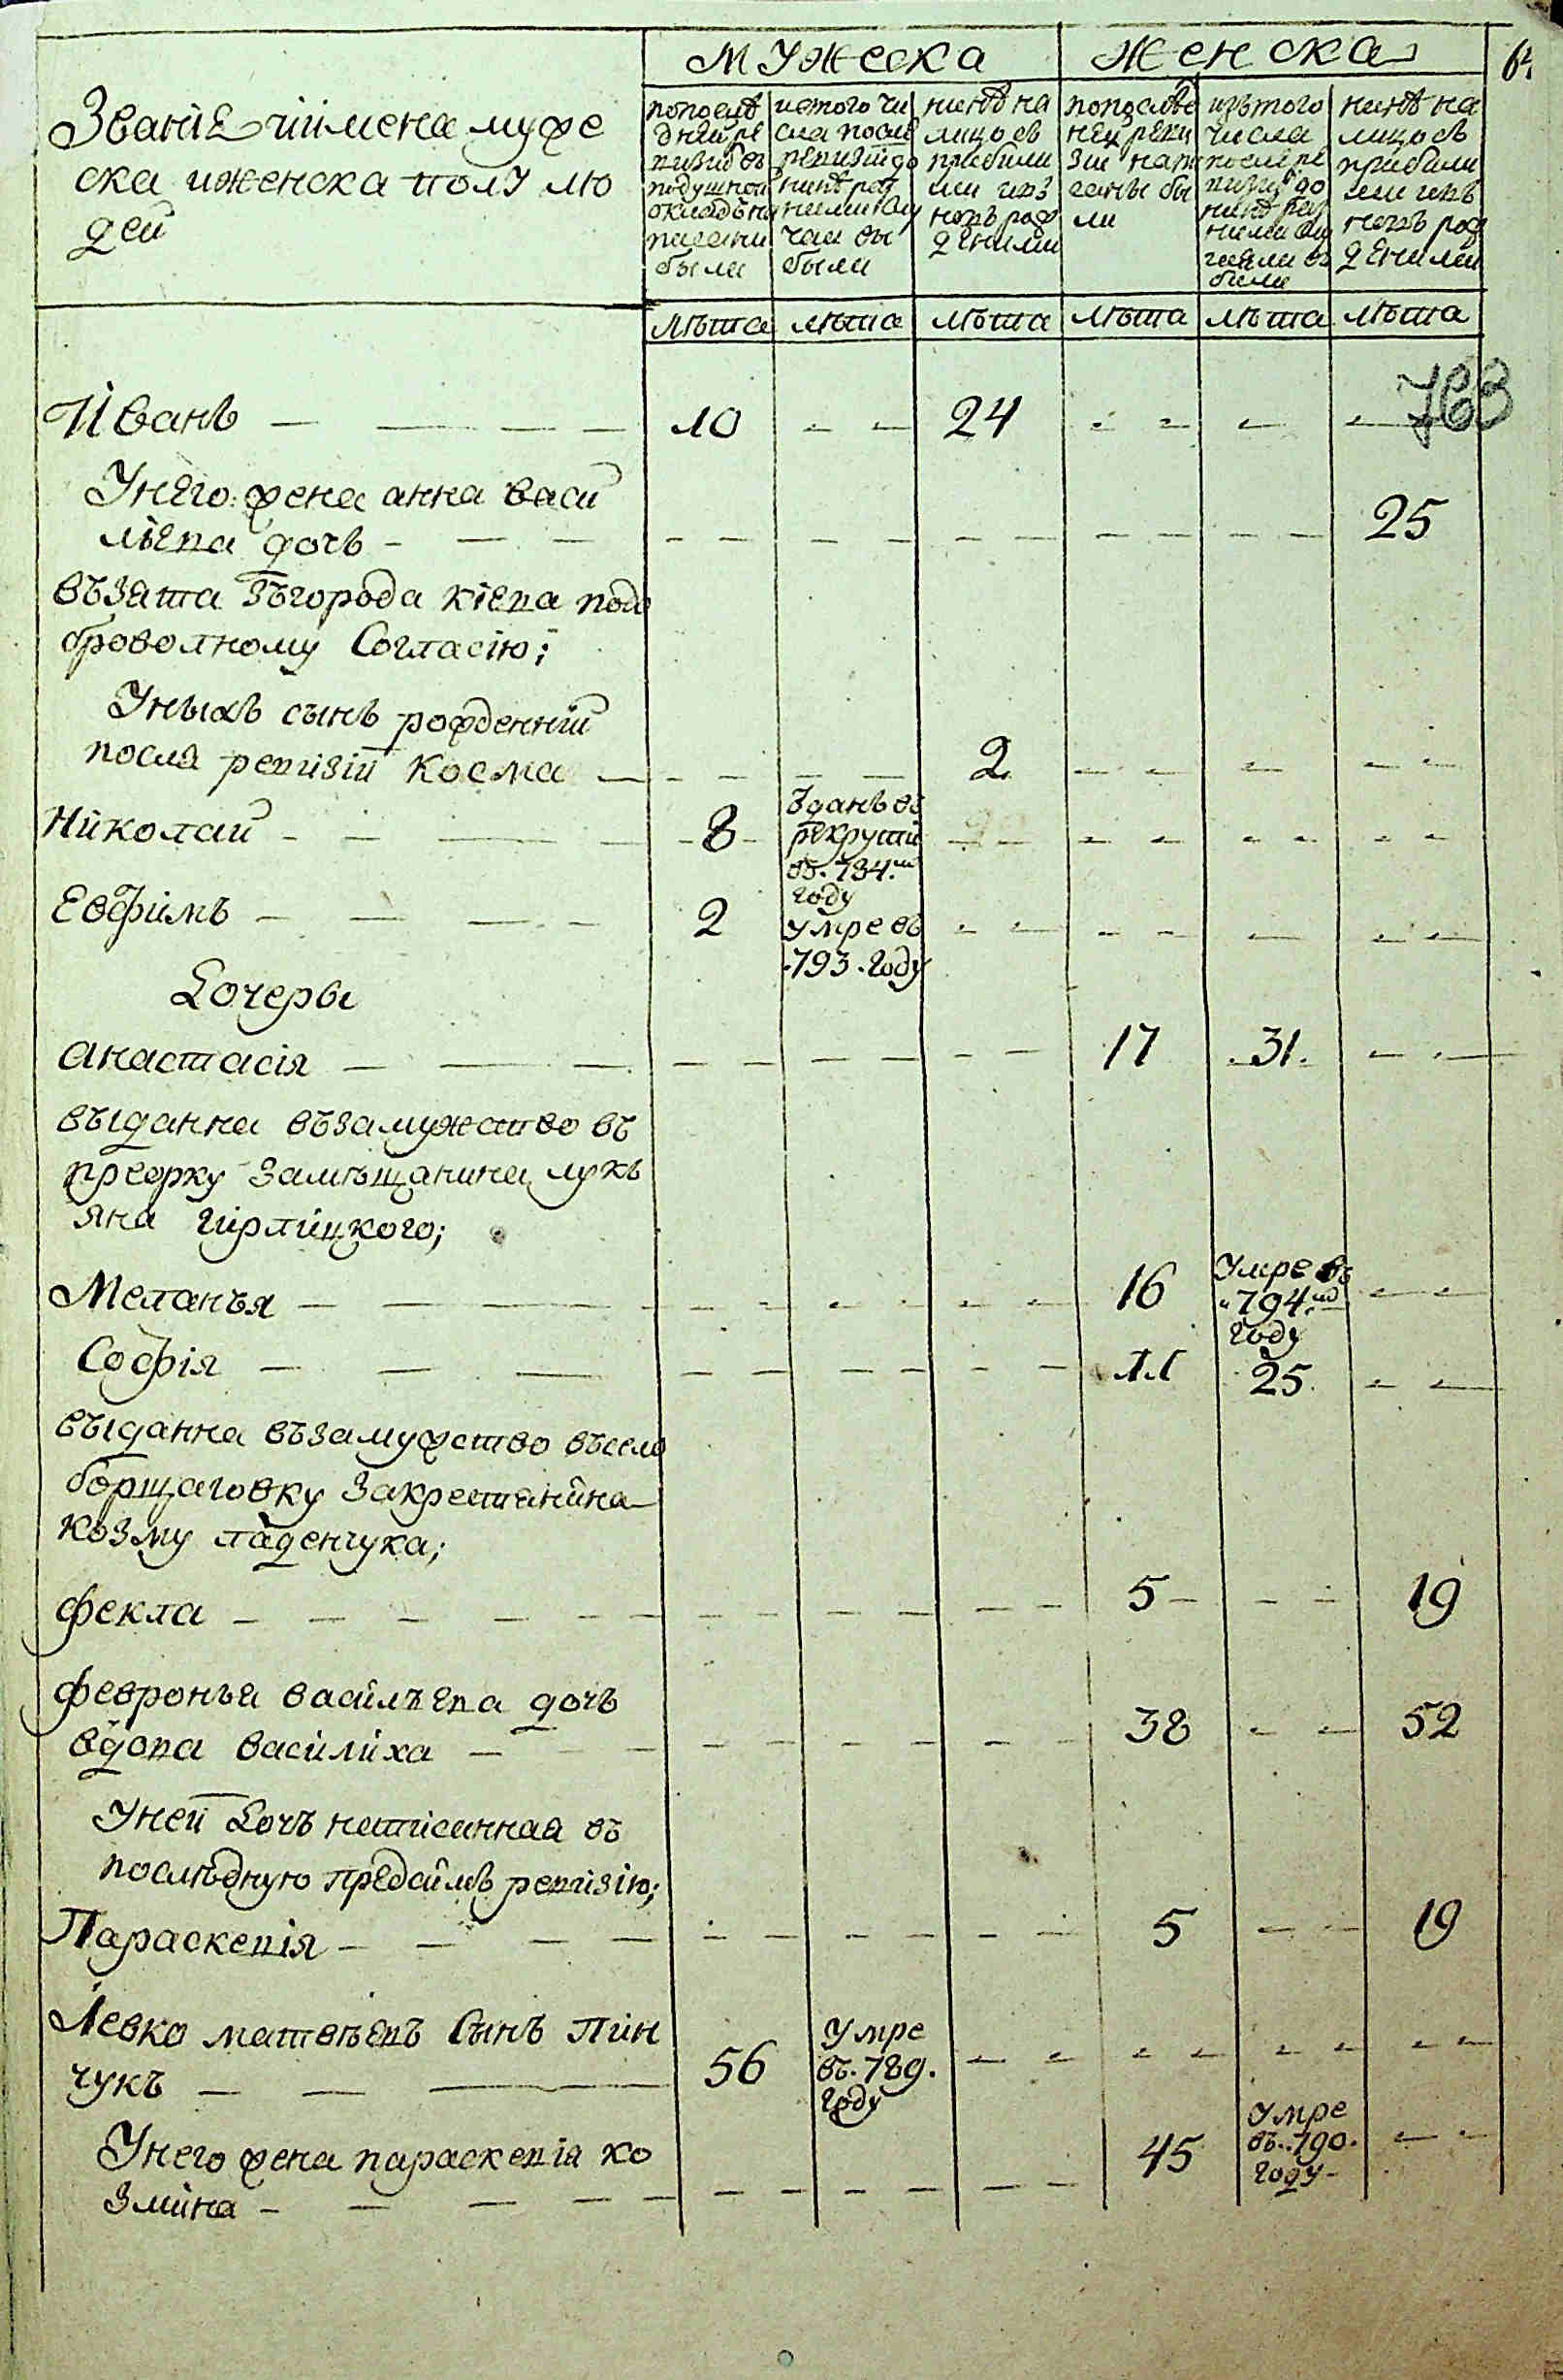 мужеска женска
Званіе иимена муже
ска иженска полу лю
дей
попослѣ
дней ре
визиі въ
подушной
окладъ на
писани
были
истого чи
сла после
ревизіи до
нинѣ раз
ними слу
чаи вы
были
нинѣ на
лицо съ
прибили
ми ивз
новъ рож
денними
попослѣд
ней реви
зіи напи
саны бы
ли
изътого
числа
после ре
визіи до
нинѣ раз
ними слу
чаями вы
были
нинѣ на
лицо съ
прибили
ми ивъ
новъ рож
денними
лѣта лѣта лѣта лѣта лѣта лѣта
763
Иванъ 10 24
Унего жена анна васи
лѣева дочь 25
въЗята Зъгорода кіева подо
броволному Согласію;
Унихъ сынъ рожденній
посля ревизіи Косма 2
Николай 8 Зданъ въ
рекрути
въ. 794.м
году
Евфимъ 2 умре въ
.793. году
Дочеры
анастасія 17 .31.
выданна възамужство въ
преорку замѣщанина лукъ
яна гирлицкого;
Меланъя 16 Умре въ
794.мъ
году
Софія 11 25
выданна възамужство въсело
борщаговку Закрестянина
козму ладенчука;
фекла 5 19
февронъя василъева дочъ
вдова василиха 38 52
Уней Дочъ написанная въ
послѣдную предсимъ ревизію;
Параскевія 5 19
Левко матвѣевъ Сынъ Пин
чукъ 56 Умре
въ. 789.
году
Унего жена параскевія ко
Змина 45 Умре
въ. 790.
году